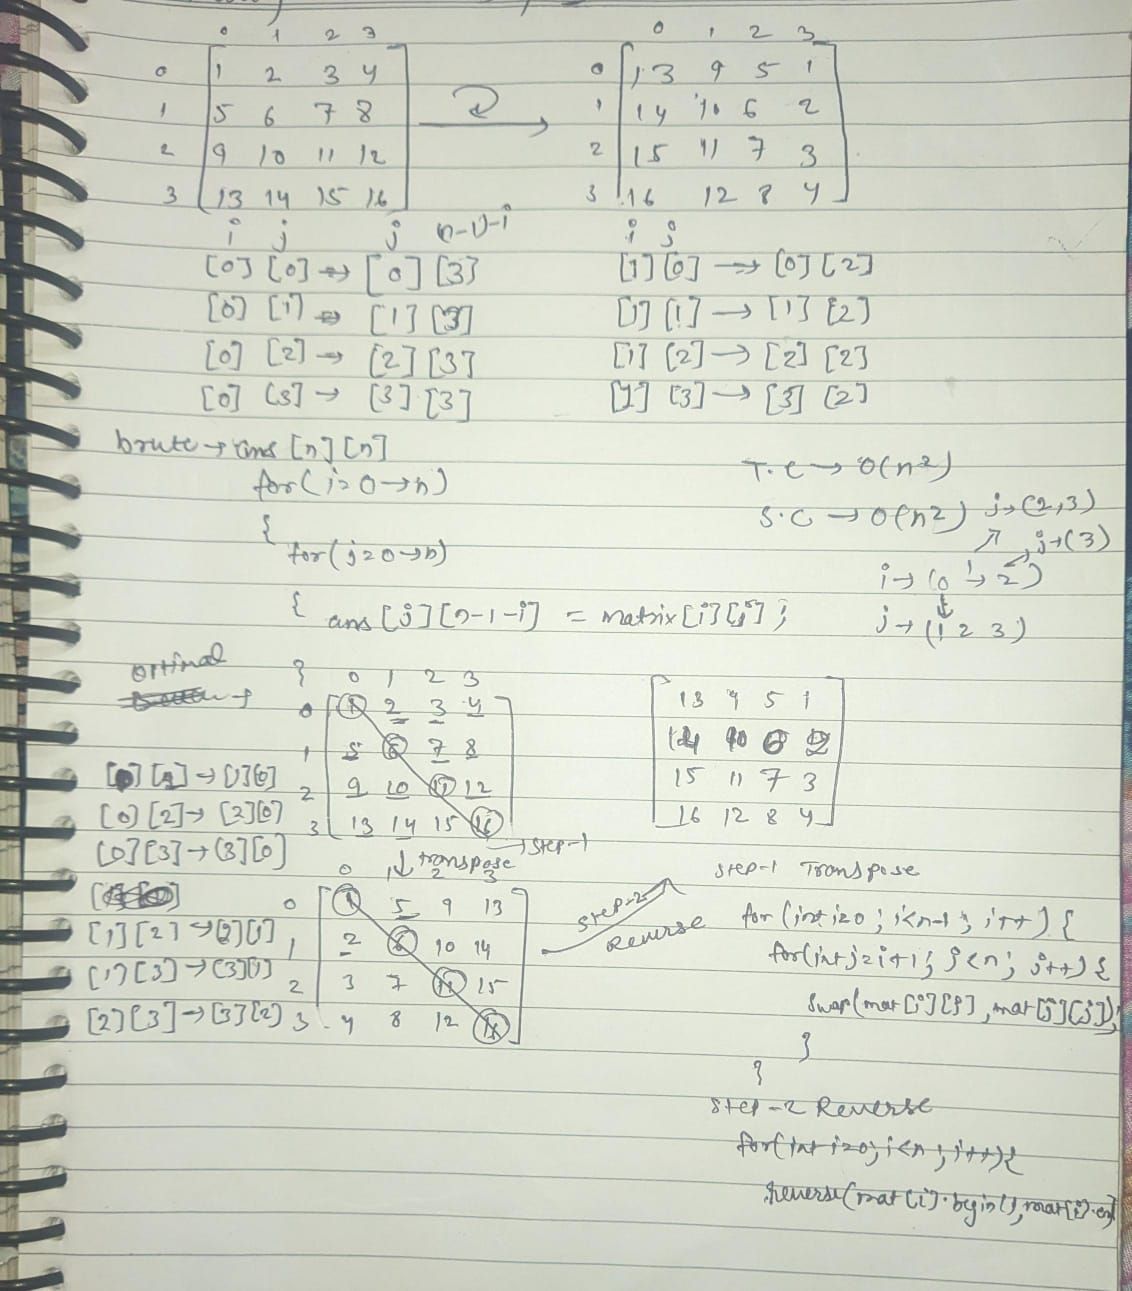 0 1 2 3
0 1 2 3 4
1 5 6 7 8
2 9 10 11 12
3 13 14 15 16
0 1 2 3
0 13 9 5 1
1 14 10 6 2
2 15 11 7 3
3 16 12 8 4
i j j (n-1)-i
[0] [0] → [0] [3]
[0] [1] → [1] [3]
[0] [2] → [2] [3]
[0] [3] → [3] [3]
i j
[1] [0] → [0] [2]
[1] [1] → [1] [2]
[1] [2] → [2] [2]
[1] [3] → [3] [2]
brute → ans [n] [n]
for (i=0→n)
{
for (j=0→n)
{ ans [j] [n-1-i] = matrix [i] [j];
}
T.C → O(n2)
S.C → O(n2)
j→(2,3)
j→(3)
i→ (0 1 → 2)
j→ (1 2 3)
optimal →
0 1 2 3
0 1 2 3 4
1 5 6 7 8
2 9 10 11 12
3 13 14 15 16
[0] [1] → [1] [0]
[0] [2] → [2] [0]
[0] [3] → [3] [0]
[1] [2] → [2] [1]
[1] [3] → [3] [1]
[2] [3] → [3] [2]
→ Step-1
↓ transpose
0 1 2 3
0 1 5 9 13
1 2 6 10 14
2 3 7 11 15
3 4 8 12 16
Step-2
Reverse
13 9 5 1
14 10 6 2
15 11 7 3
16 12 8 4
Step-1 Transpose
for (int i=0; i<n-1; i++) {
for (int j=i+1; j<n; j++) {
swap(mat [i] [j], mat [j] [i]);
}
}
Step-2 Reverse
for (int i=0; i<n; i++) {
reverse(mat[i].begin(), mat[i].en